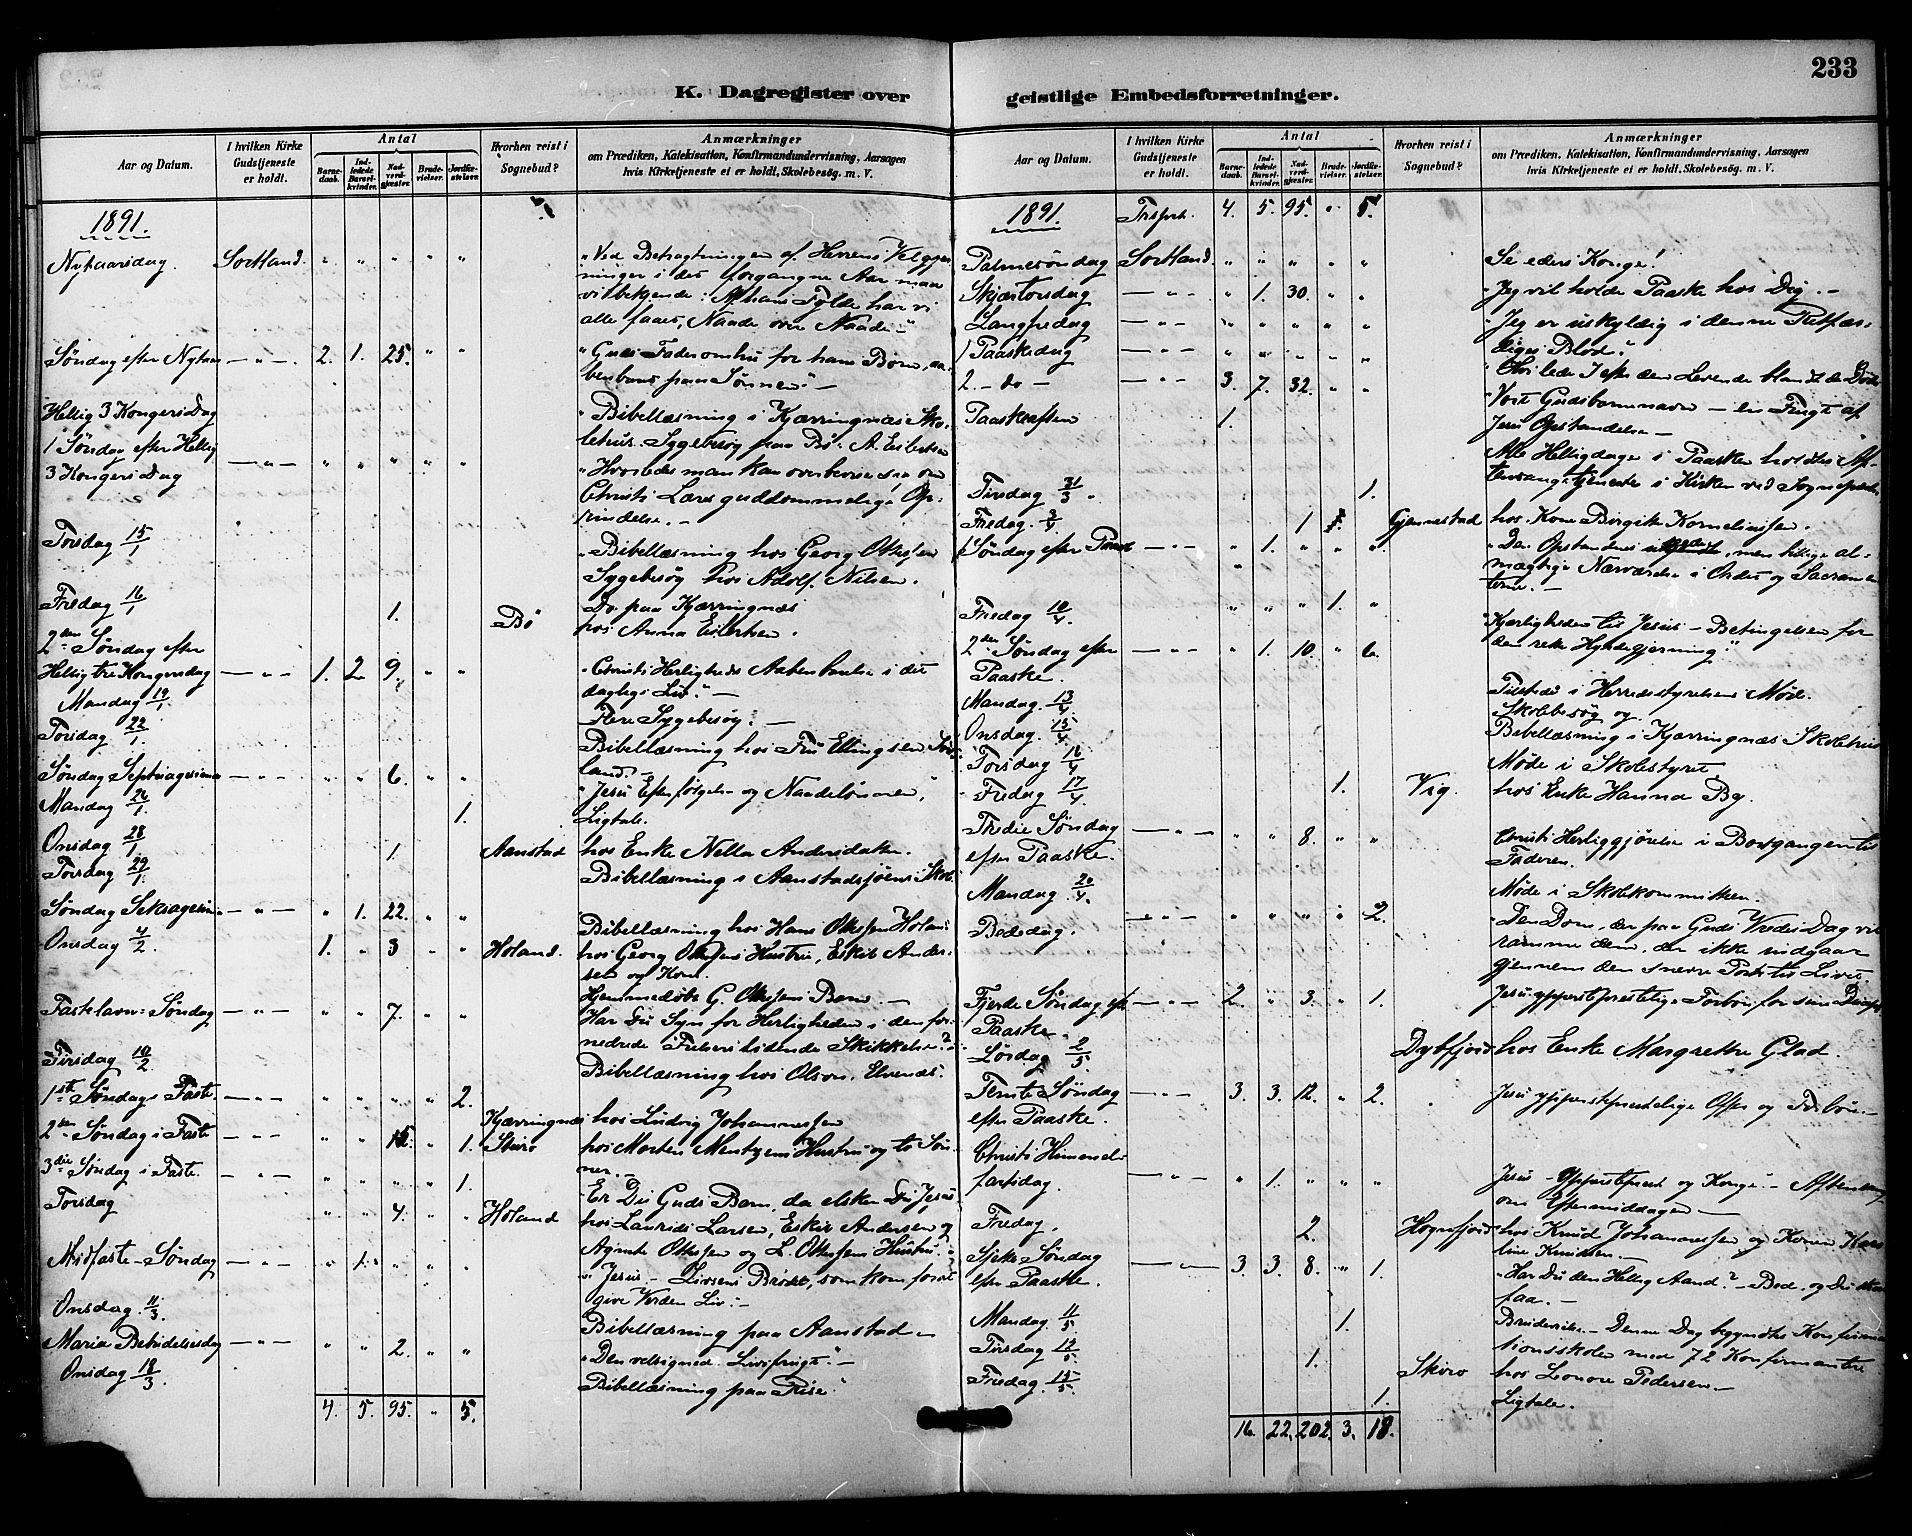 233
K. Dagregister over geistlige Embedsforretninger.
Aar og Datum.
I hvilken Kirke Gudstjeneste er holdt.
Antal
Barnedaab.
Indledede Barselkvinder.
Nadverdgjester.
Brudevielser.
Jordfæstelser.
Hvorhen reist i Sognebud?
Anmærkninger
om Prædiken, Katekisation, Konfirmandundervisning, Aarsagen
hvis Kirketjeneste ei er holdt, Skolebesøg. m. V.
1891.
Nytaarsdag. Sortland. " " " " " "Ved Betragtningen af Herrens Velgjer-
ninger i det forgangne Aar maa
vi bekjende: Af hans Fylde har vi
alle faaet, Naade over Naade" –
Søndag efter Nytaar – " – 2. 1. 25. " " "Guds Faderomhu for hans Børn, aa-
benbaret paa Sønnen." –
Hellig 3 Kongers Dag "Bibellæsning i Kjærringnæs Sko-
1 Søndag efter Hellig lehus. Sygebesøg paa Bø. A. Eilertsen
3 Kongers Dag – " – " " " " " "Hvorledes man kan overbevises om
Christi Læres guddommelige Op-
rindelse. –
Torsdag 15/1 "Bibellæsning hos Georg Ottesen
Sygebesøg hos Adolf Nilsen.
Fredag 16/1 1. Bø Do. paa Kjærringnæs
hos Anna Eilertsen.
2den Søndag efter
Hellig tre Kongersdag – " – 1. 2 9. " " "Christi Herligheds Aabenbarelse i det
Mandag 19/1 daglige Liv." –
Torsdag 22/1 Flere Sygebesøg. –
Bibellæsning hos Fru Ellingsen Sort-
land. –
Søndag Septuagesima – " – " " 6. " " "Jesu Efterfølgelse og Naadelønnen"
Mandag 26/1 1. Ligtale.
Onsdag 28/1 1 Aanstad hos Enke Nella Andersdatter.
Torsdag 29/1 Bibellæsning i Aanstadsjøens Skole
Søndag Seksagesima – " – " 1. 22. " "
Bibellæsning hos Hans Ottesen Holand
Onsdag 4/2 1. " 3 " " Holand. hos Georg Ottesens Hustru, Eskil Ander-
sen og Kone.
Hjemmedøbt G. Ottesens Barn –
Fastelavns-Søndag – " – " " 7. " " Har Du Syn for Herligheden i den for-
nedrede Frelsers lidende Skikkelse?
Tirsdag 10/2 Bibellæsning hos Olsen, Elvenæs.
1ste Søndag i Faste – " – " " " " 2.
Kjærringnæs hos Ludvig Johannessen
2den Søndag i Faste – " – " " 15. " 1. Skiro hos Morten Mentzens Hustru og to Søn-
ner. –
3die Søndag i Faste. – " – " " " " 1.
"Er Du Guds Barn, da elsker Du Jesus
Torsdag " " 4. " " Holand hos Laurids Larsen, Eskil Andersen og
Agnete Ottesen og L. Ottesens Hustru.
Midfaste-Søndag – " – " 1. " " " "Jesus – Livsens Brød, som kom for at
give Verden Liv". –
Onsdag 11/3 Bibellæsning paa Aanstad –
Maria Bebudelsesdag – " – " " 2. " " "Den velsignede Livsfrugt." –
Onsdag 18/3 Bibellæsning paa Rise.
4. 5. 95. " 5.
Aar og Datum.
I hvilken Kirke Gudstjeneste er holdt.
Antal
Barnedaab.
Indledede Barselkvinder.
Nadverdgjester.
Brudevielser.
Jordfæstelser.
Hvorhen reist i Sognebud?
Anmærkninger
om Prædiken, Katekisation, Konfirmandundervisning, Aarsagen
hvis Kirketjeneste ei er holdt, Skolebesøg. m. V.
1891. Trsprt. 4. 5. 95. " 5.
Palmesøndag Sortland. " " " " " Se eders Konge!
Skjærtorsdag – " – " 1. 30. " " "Jeg vil holde Paaske hos Dig. –
Langfredag – " – " " " " " Jeg er uskyldig i denne Retfær-
diges Blod".
1 Paaskedag – " – " " " " " "Hvi lede I efter den Levende blandt de Døde
2. – do – – " – 3. 7. 32. " " "Vort Gudsbarnnavn – en Frugt af
Jesu Opstandelse –
Paaskeaften 1.
Alle Helligdage i Paasken holdtes Af-
tensangstjeneste i Kirken ved Sognepræsten
Tirsdag 31/3. 1.
Fredag 3/4 1 Gjennestad hos Kone Birgitte Kornelinssen.
1 Søndag efter Paaske – " – " 1. " " " "Den Opstandnes , men hellige al-
mægtige Nærværelse i Ordet og Sacramen-
terne. –
Fredag 10/4 " " " 1. "
2den Søndag efter Paaske. – " – " 1. 10. " 6. "Kjærligheden til Jesus – Betingelsen for
den rette Hyrdegjerning".
Mandag 13/4 Tilstede i Herredsstyrelsens Møde.
Onsdag 15/4 Skolebesøg og
Bibellæsning i Kjærringnæs Skolehus
Torsdag 16/4 Møde i Skolestyret
Fredag 17/4 1. Vig. hos Enke Hanna By.
Tredie Søndag efter Paaske. – " – " " 8. " " Christi Herliggjørelse i Bortgangen til
Faderen.
Mandag 20/4. Møde i Skolekommitteen.
Bededag. – " – " " " " 2. "Den Dom, der paa Guds Vredes Dag vil
ramme dem, der ikke indgaar
gjennem den snevre Port til Livet
Fjerde Søndag eft. Paaske. – " – 2. " 3. " 1. Jesu ypperstepræstelige Forbøn for sine Disciple
Lørdag 2/5 Dybfjord hos Enke Margrethe Glad.
Femte Søndag efter Paaske. – " – 3. 3. 12. " 2. Jesu ypperstepræstelige Offer og Forbøn –
Christi Himmel-
fartsdag. – " – " 1. " " " Jesus – Ypperstepræst og Konge – Aftensang
om Eftermiddagen –
Fredag. 2. Hognfjord hos Knud Johannessen og Konen Karo-
line Knudsen. –
Sjette Søndag efter Paaske. – " – 3. 3. 8. " 1. "Har Du den Hellig Aand? – Bed, og Du skal
faa. –
Mandag 11/5 1. Brudevielse – Denne Dag begyndtes Konfirma-
Tirsdag 12/5. 1. tionsskolen med 72 Konfirmanter
Fredag 15/5. Skiro hos Leonore Pedersen –
1. Ligtale.
16. 22. 202. 3. 18.